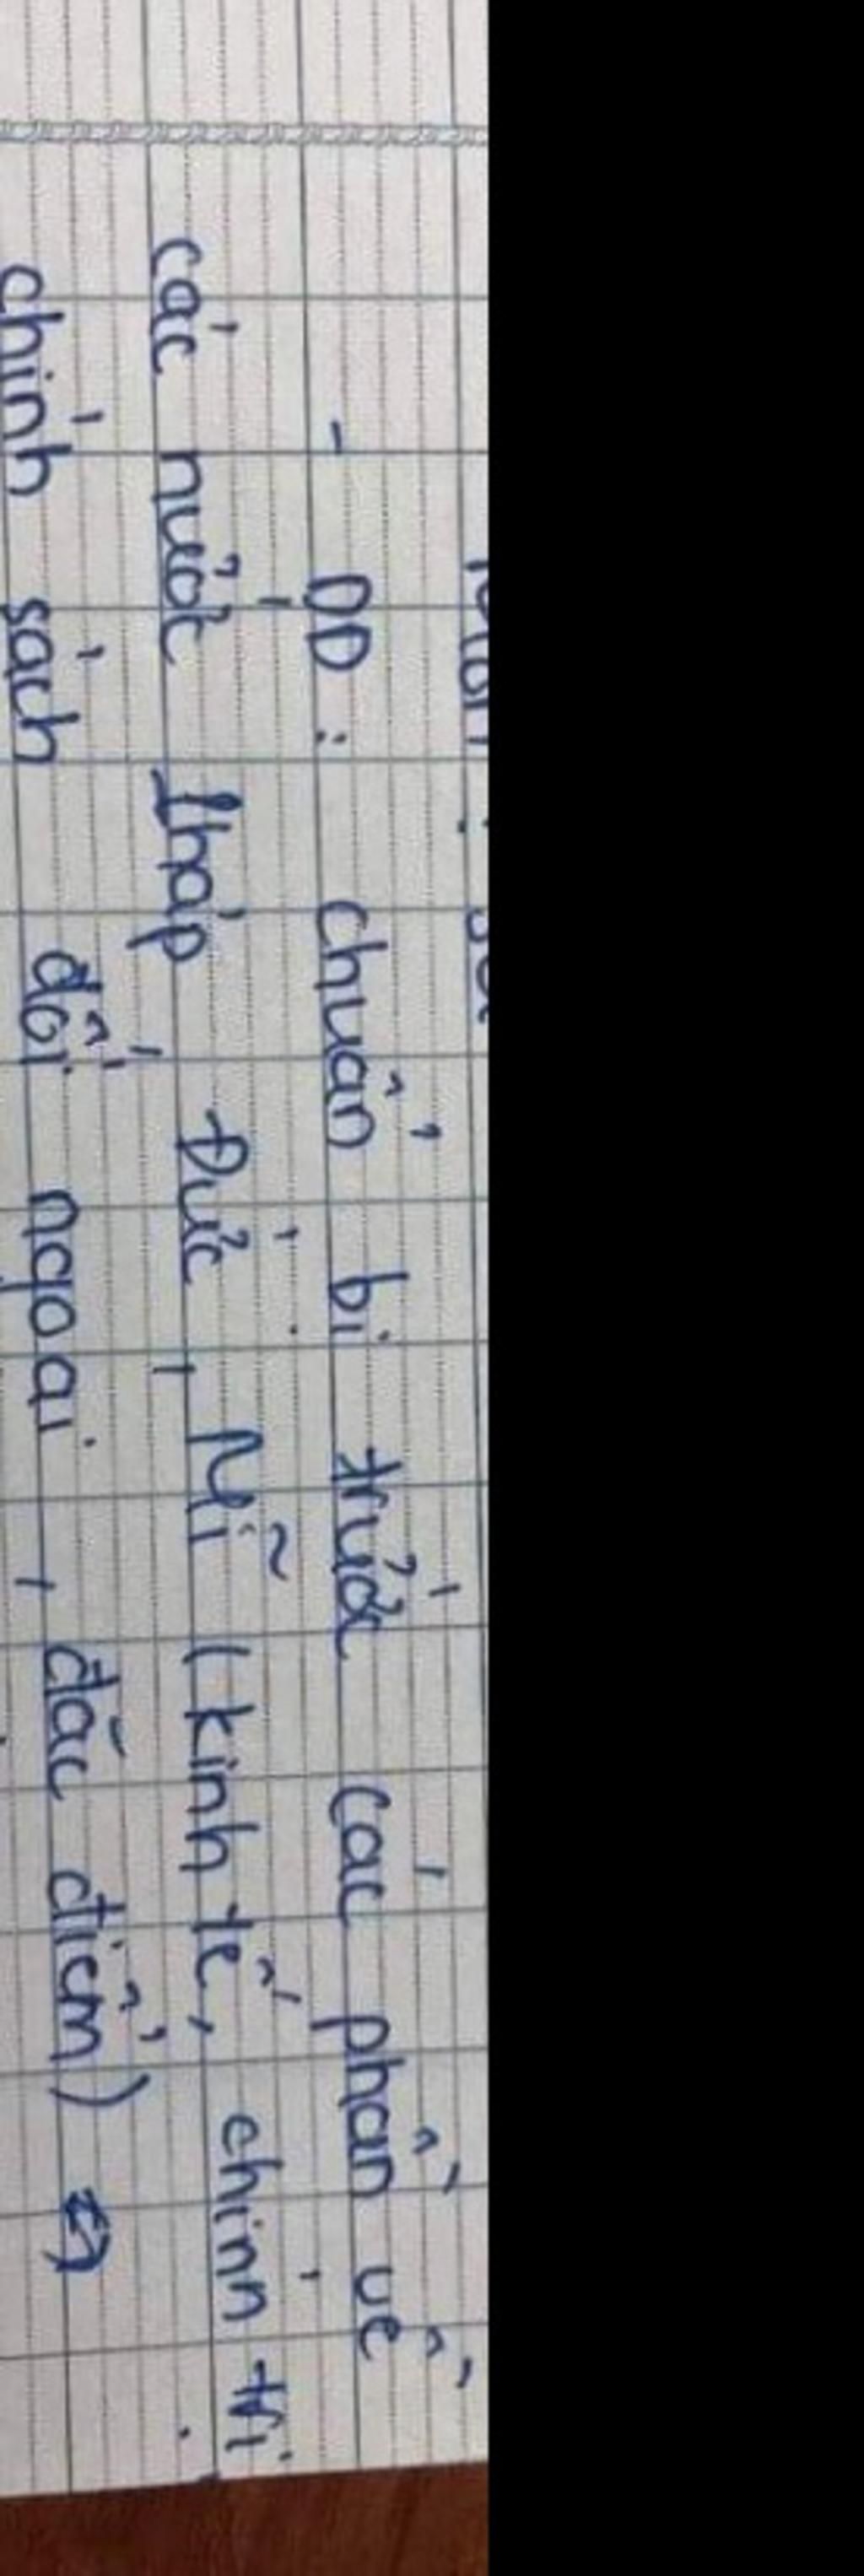 - DD : chuẩn bị trước các phần về
các nước Pháp Đức, Mĩ (kinh tế, chính trị
chính sách đối ngoại, đặc điểm)